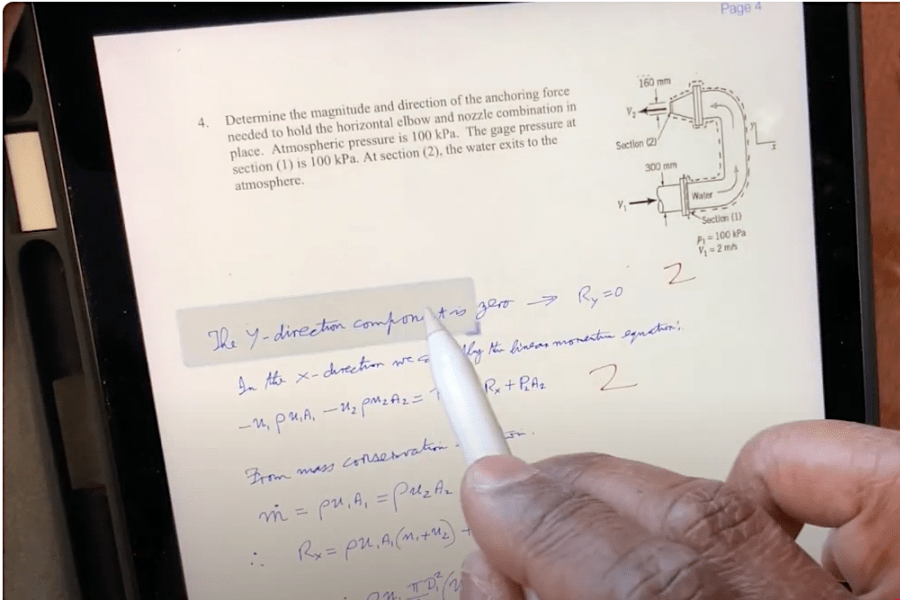 Page 4
4. Determine the magnitude and direction of the anchoring force
needed to hold the horizontal elbow and nozzle combination in
place. Atmospheric pressure is 100 kPa. The gage pressure at
section (1) is 100 kPa. At section (2), the water exits to the
atmosphere.
160 mm
V₂
Section (2)
y
x
300 mm
Water
V₁
Section (1)
p₁ = 100 kPa
V₁ = 2 m/s
The Y-direction is zero → Ry=0
2
In the x-direction we the linear momentum equation:
-u₁ρu₁A₁ - u₂ρu₂A₂ = Rx + P₂A₂
2
From mass conservation
ṁ = ρu₁A₁ = ρu₂A₂
∴ Rx = ρu₁A₁(u₁+u₂) +
ρu₁ πD₁²